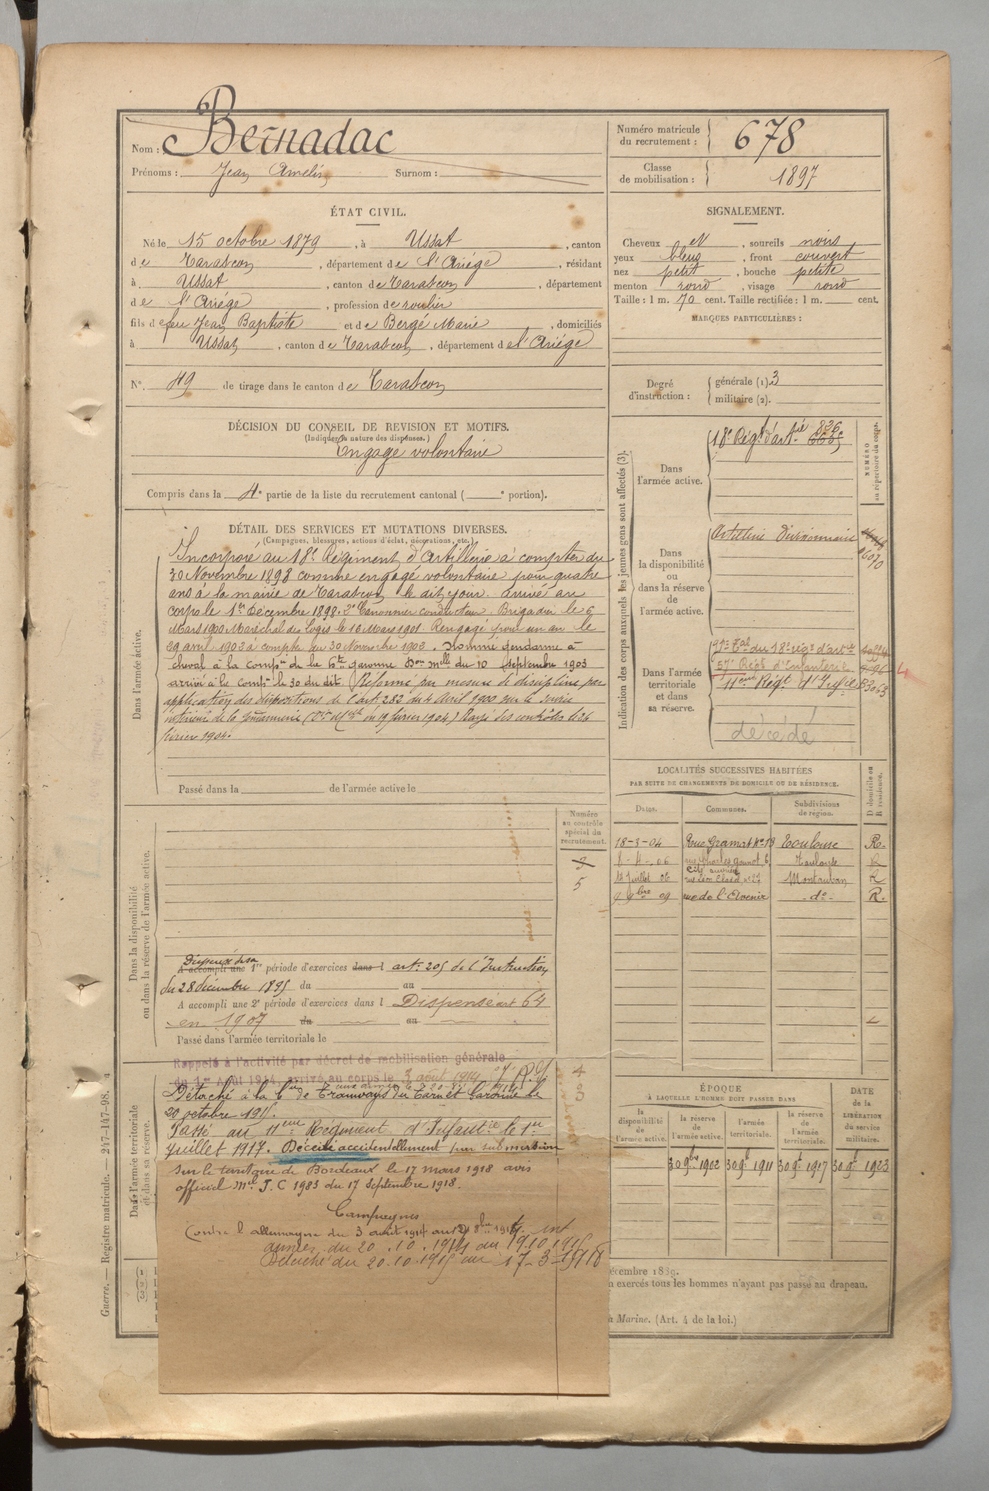 Nom : Bernadac
Prénoms : Jean Amelin Surnom :
Numéro matricule du recrutement : 678
Classe de mobilisation : 1897
ÉTAT CIVIL.
Né le 15 octobre 1879, à Ussat, canton
de Tarascon, département de l'Ariège, résidant
à Ussat, canton de Tarascon, département
de l'Ariège, profession de roulier
fils de feu Jean Baptiste et de Bergé Marie, domiciliés
à Ussat, canton de Tarascon, département de l'Ariège
N° 49 de tirage dans le canton de Tarascon
SIGNALEMENT.
Cheveux et, sourcils noirs
yeux bleus, front couvert
nez petit, bouche petite
menton rond, visage rond
Taille : 1 m. 70 cent. Taille rectifiée : 1 m. cent.
MARQUES PARTICULIÈRES :
Degré d'instruction : générale (1). 3
militaire (2).
DÉCISION DU CONSEIL DE REVISION ET MOTIFS.
(Indiquer la nature des dispenses.)
Engagé volontaire
Compris dans la 4e partie de la liste du recrutement cantonal ( e portion).
DÉTAIL DES SERVICES ET MUTATIONS DIVERSES.
(Campagnes, blessures, actions d'éclat, décorations, etc.)
Dans l'armée active.
Incorporé au 18e Régiment d'Artillerie à compter du
30 Novembre 1898 comme engagé volontaire pour quatre
ans à la mairie de Tarascon le dit jour. Arrivé au
corps le 1er Décembre 1898. 2e Canonnier conducteur. Brigadier le 6
Mars 1900 Maréchal des Logis le 16 Mars 1901. Rengagé pour un an le
29 avril 1903 à compter du 30 Novembre 1903. Nommé gendarme à
cheval à la Compie de la Hte Garonne Don mlle du 10 septembre 1903
arrivé à la Compie le 30 du dit. (Réformé par mesure de discipline par
application des dispositions de l'art. 252 du 4 Avril 1900 sur le service
intérieur de la gendarmerie du 19 février 1904.) Rayé des contrôles le 26
février 1904.
Passé dans la de l'armée active le
Indication des corps auxquels les jeunes gens sont affectés (3).
NUMÉRO au répertoire du corps.
Dans l'armée active.
18e Régt d'artrie 826
Dans la disponibilité ou dans la réserve de l'armée active.
Artillerie Divisionnaire 6070
Dans l'armée territoriale et dans sa réserve.
du 18e rég d'artie
57e Régt d'Infanterie
11eme Régt d'Infie
décédé
LOCALITÉS SUCCESSIVES HABITÉES
PAR SUITE DE CHANGEMENTS DE DOMICILE OU DE RÉSIDENCE.
Dates. Communes. Subdivisions de région. D domicile ou R résidence.
18-3-04 Rue Gramat No 13 Toulouse R.
8-4-06 Toulouse R
Juillet 06 Montauban R
9 9bre 09 rue de l'Avenir do R.
Numéro au contrôle spécial du recrutement.
3
5
Dans la disponibilité ou dans la réserve de l'armée active.
Dispensé de sa
A accompli une 1re période d'exercices dans l art. 205 de l'Instruction
du 28 décembre 1895 du au
A accompli une 2e période d'exercices dans l Dispensé art 64
en 1907 du au
Passé dans l'armée territoriale le
Dans l'armée territoriale et dans sa réserve.
Rappelé à l'activité par décret de mobilisation générale
du 1er Août 1914, arrivé au corps le 3 août 1914
Détaché à la Cie de Tramways du Tarn et Garonne le
20 octobre 1915.
Passé au 11eme Régiment d'Infantie le 1er
juillet 1917. Décédé accidentellement par submersion
sur le territoire de Bordeaux le 17 mars 1918 avis
officiel Mle J. C 1983 du 17 septembre 1918.
Campagnes
Contre l'allemagne du 3 août 1914 au
armées du 20.10.1914 au 19.10.1915
Détaché du 20.10.1915 au 17-3-1918
4
3
ÉPOQUE
À LAQUELLE L'HOMME DOIT PASSER DANS
la disponibilité de l'armée active. la réserve de l'armée active. l'armée territoriale. la réserve de l'armée territoriale.
DATE de la LIBÉRATION du service militaire.
30 9bre 1902 30 9e 1911 30 9e 1917 30 9e 1923
Guerre. — Registre matricule. — 247-147-98.
écembre 1889.
n exercés tous les hommes n'ayant pas passé au drapeau.
a Marine. (Art. 4 de la loi.)